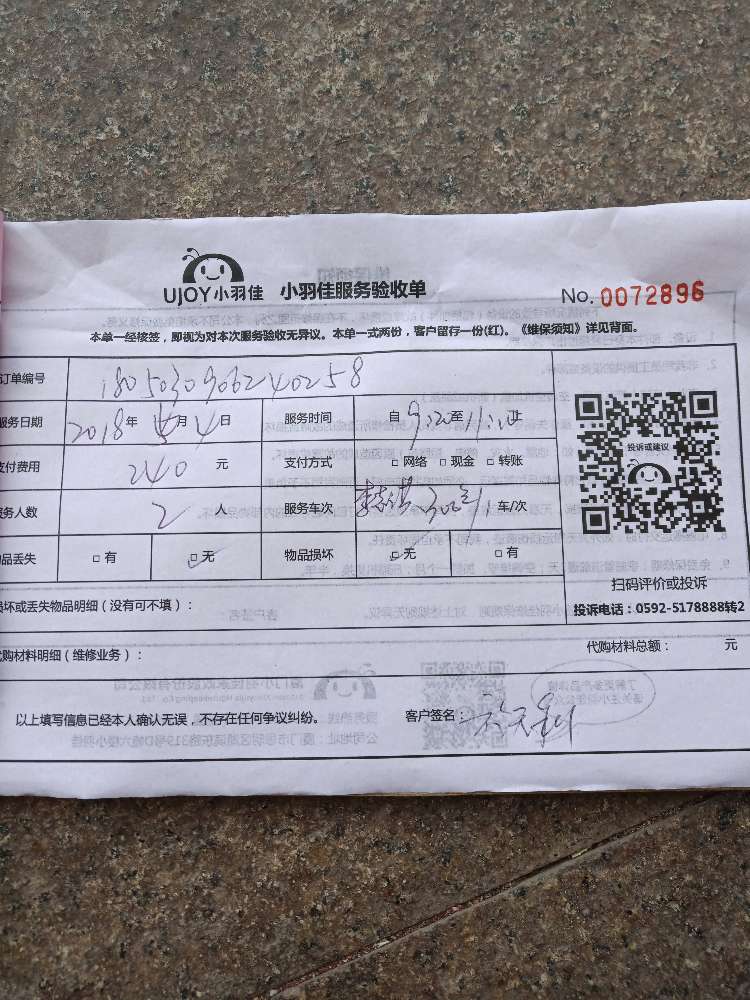 UJOY小羽佳 小羽佳服务验收单 No. 0072896
本单一经核签，即视为对本次服务验收无异议。本单一式两份，客户留存一份(红)。《维保须知》详见背面。
订单编号 1805030906240258
服务日期 2018年 5月 4日 服务时间 自 9:20至 11:20止
支付费用 240 元 支付方式 □网络 □现金 □转账
服务人数 2 人 服务车次 车/次
品丢失 □有 □无 物品损坏 □无 □有
投诉或建议
扫码评价或投诉
损坏或丢失物品明细（没有可不填）： 投诉电话：0592-5178888转2
代购材料明细（维修业务）： 代购材料总额： 元
以上填写信息已经本人确认无误，不存在任何争议纠纷。 客户签名：